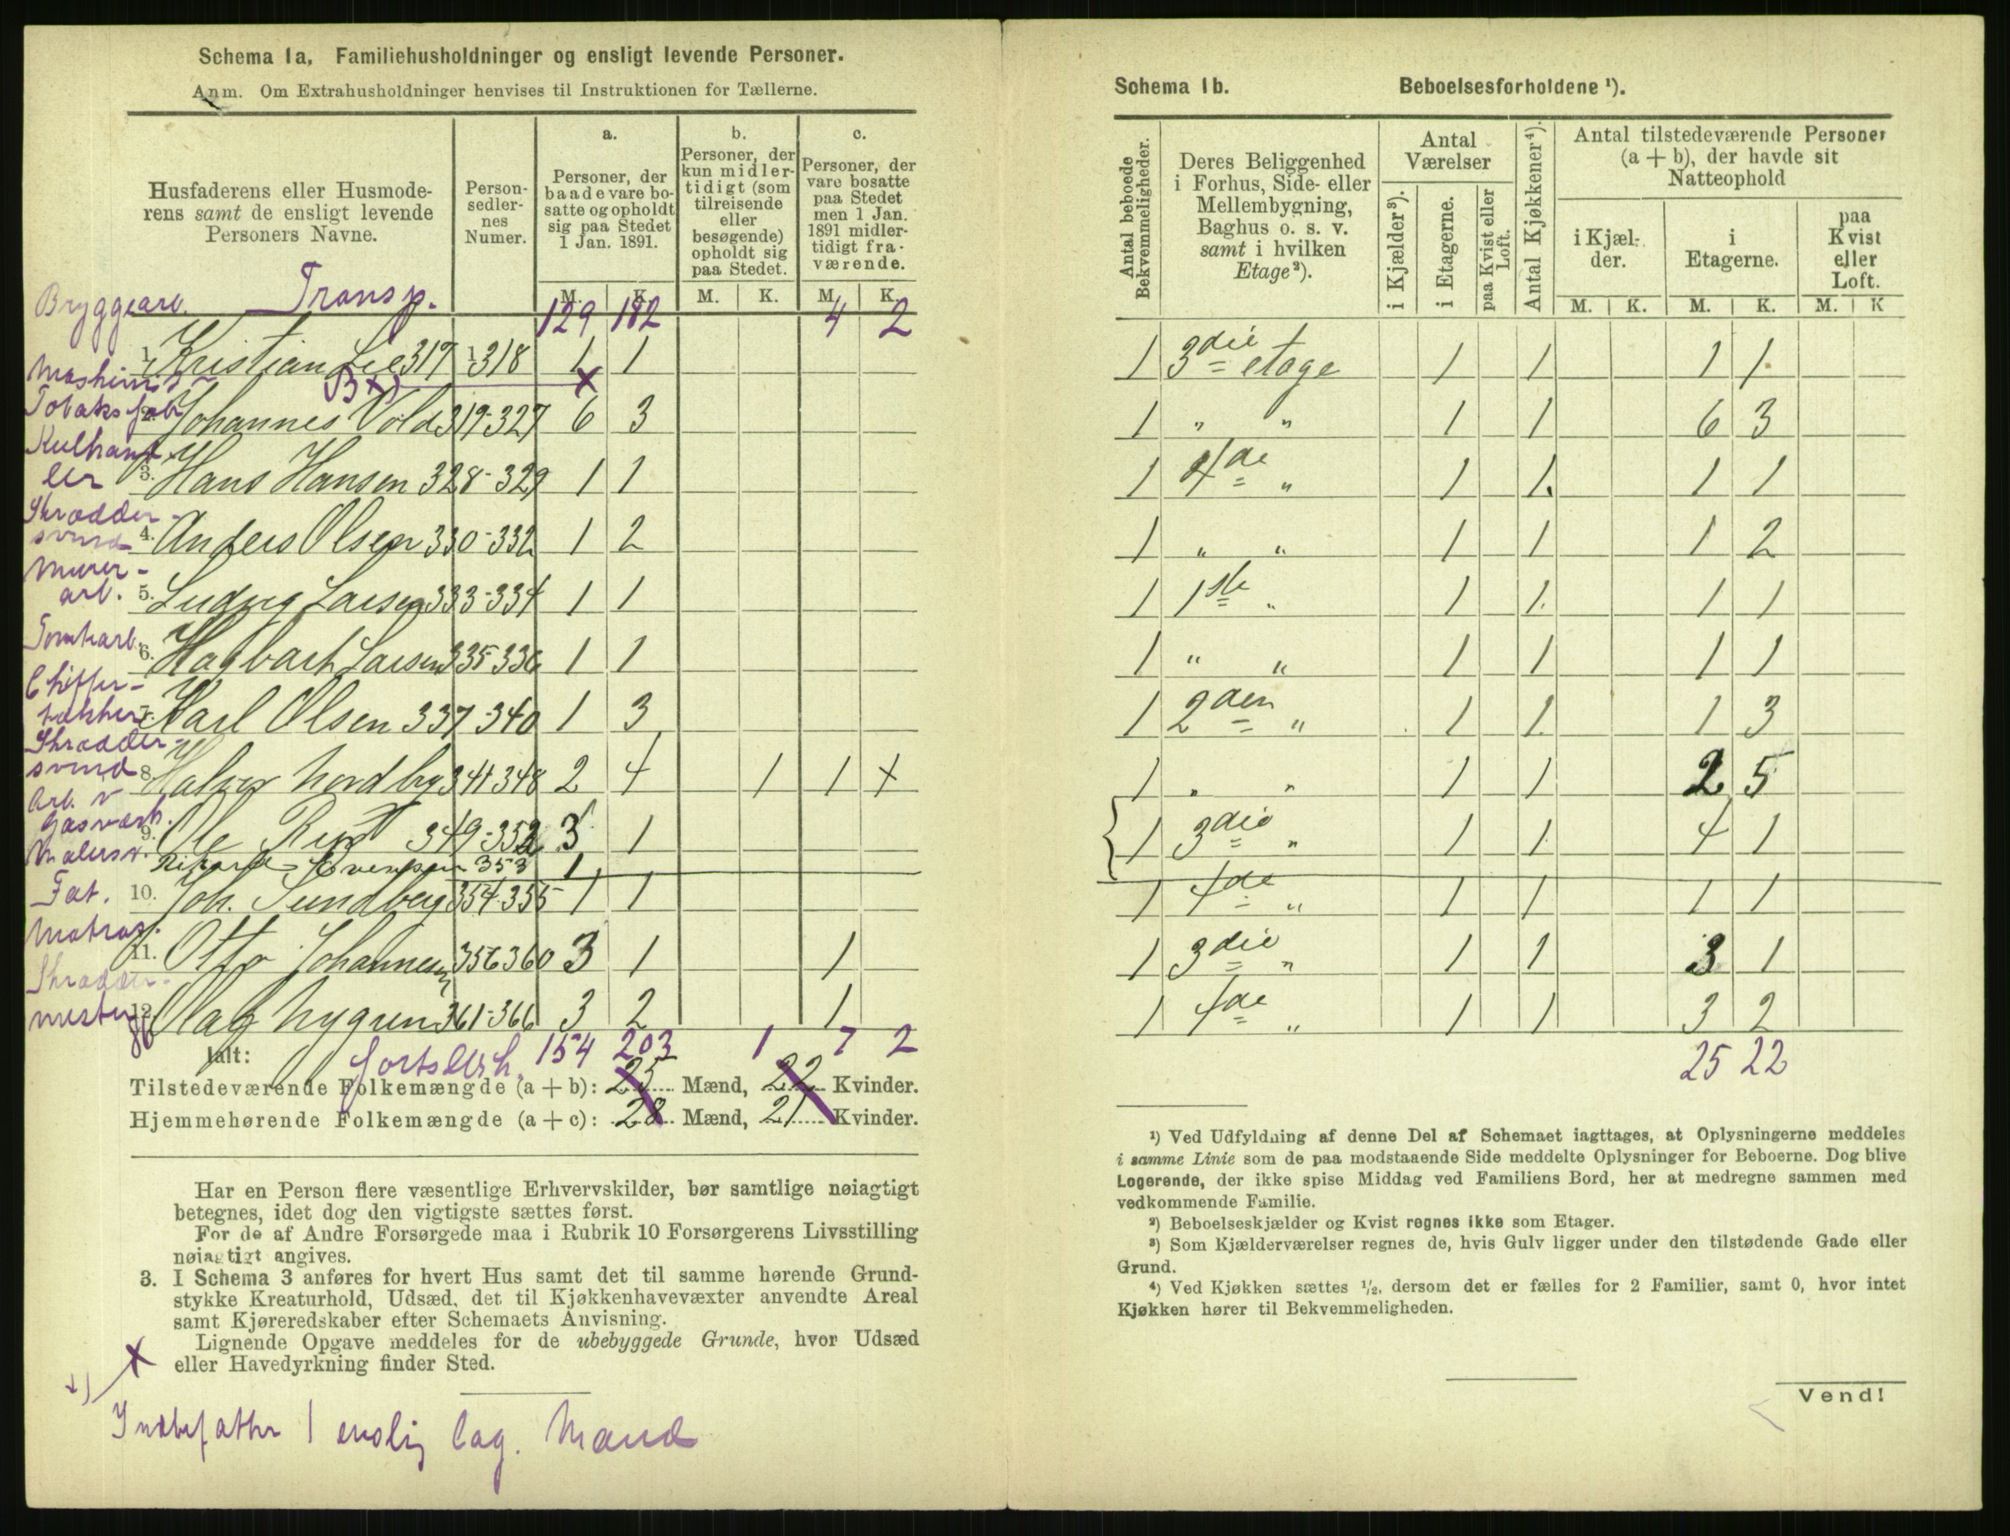 Schema 1a, Familiehusholdninger og ensligt levende Personer.
Anm. Om Extrahusholdninger henvises til Instruktionen for Tællerne.
Husfaderens eller Husmode-
rens samt de ensligt levende
Personers Navne.
Person-
sedler-
nes
Numer.
a.
Personer, der
baade vare bo-
satte og opholdt
sig paa Stedet
1 Jan. 1891.
b.
Personer, der
kun midler-
tidigt (som
tilreisende
eller
besøgende)
opholdt sig
paa Stedet.
c.
Personer, der
vare bosatte
paa Stedet
men 1 Jan.
1891 midler-
tidigt fra-
værende.
M. K. M. K. M. K.
Bryggearb. Transp. 129 182 4 2
1. Kristian Lie 317-318 1 1
Maskinist
Tobaksfab. 2. Johannes Vold 319-327 6 3
Kulhand-
ler 3. Hans Hansen 328-329 1 1
Skrædder-
svend 4. Anders Olsen 330-332 1 2
Murer-
arb. 5. Ludvig Larsen 333-334 1 1
Tomtearb. 6. Hagbart Larsen 335-336 1 1
7. Karl Olsen 337-340 1 3
Skrædder-
svend 8. Halvor Nordby 341-348 2 4 1 1 x
Arb. v
Gasværk. 9. Ole 349-352 3 1
Malersv. Rikard Evensen 353 1
Fat. 10. Joh. Sundberg 354-355 1 1
Matros. 11. Otto Johannesen 356-360 3 1 1
Skrædder-
mester 12. Olaf Nygren 361-366 3 2 1
Ialt: 154 203 1 7 2
Tilstedeværende Folkemængde (a + b): 25 Mænd, 22 Kvinder.
Hjemmehørende Folkemængde (a + c): 28 Mænd, 21 Kvinder.
Har en Person flere væsentlige Erhvervskilder, bør samtlige nøiagtigt
betegnes, idet dog den vigtigste sættes først.
For de af Andre Forsørgede maa i Rubrik 10 Forsørgerens Livsstilling
nøiagtigt angives.
3. I Schema 3 anføres for hvert Hus samt det til samme hørende Grund-
stykke Kreaturhold, Udsæd, det til Kjøkkenhavevæxter anvendte Areal
samt Kjøreredskaber efter Schemaets Anvisning.
Lignende Opgave meddeles for de ubebyggede Grunde, hvor Udsæd
eller Havedyrkning finder Sted.
Indbefatter 1 enslig log. Mand
Schema 1b. Beboelsesforholdene ¹).
Antal beboede
Bekvemmeligheder.
Deres Beliggenhed
i Forhus, Side- eller
Mellembygning,
Baghus o. s. v.
samt i hvilken
Etage²).
Antal
Værelser
i Kjælder³).
i Etagerne.
paa Kvist eller
Loft.
Antal Kjøkkener⁴).
Antal tilstedeværende Personer
(a + b), der havde sit
Natteophold
i Kjæl-
der.
i
Etagerne.
paa
Kvist
eller
Loft.
M. K. M. K. M. K
1 3die etage 1 1 1 1
1 " " 1 1 6 3
1 4de " 1 1 1 1
1 " " 1 1 1 2
1 1ste " 1 1 1 1
1 " " 1 1 1 1
1 2den " 1 1 1 3
1 " " 1 1 2 5
1 3die " 1 1 4 1
1 4de " 1 1 1 1
1 3die " 1 1 3 1
1 4de " 1 1 3 2
25 22
¹) Ved Udfyldning af denne Del af Schemaet iagttages, at Oplysningerne meddeles
i samme Linie som de paa modstaaende Side meddelte Oplysninger for Beboerne. Dog blive
Logerende, der ikke spise Middag ved Familiens Bord, her at medregne sammen med
vedkommende Familie.
²) Beboelseskjælder og Kvist regnes ikke som Etager.
³) Som Kjælderværelser regnes de, hvis Gulv ligger under den tilstødende Gade eller
Grund.
⁴) Ved Kjøkken sættes ¹/₂, dersom det er fælles for 2 Familier, samt 0, hvor intet
Kjøkken hører til Bekvemmeligheden.
Vend!